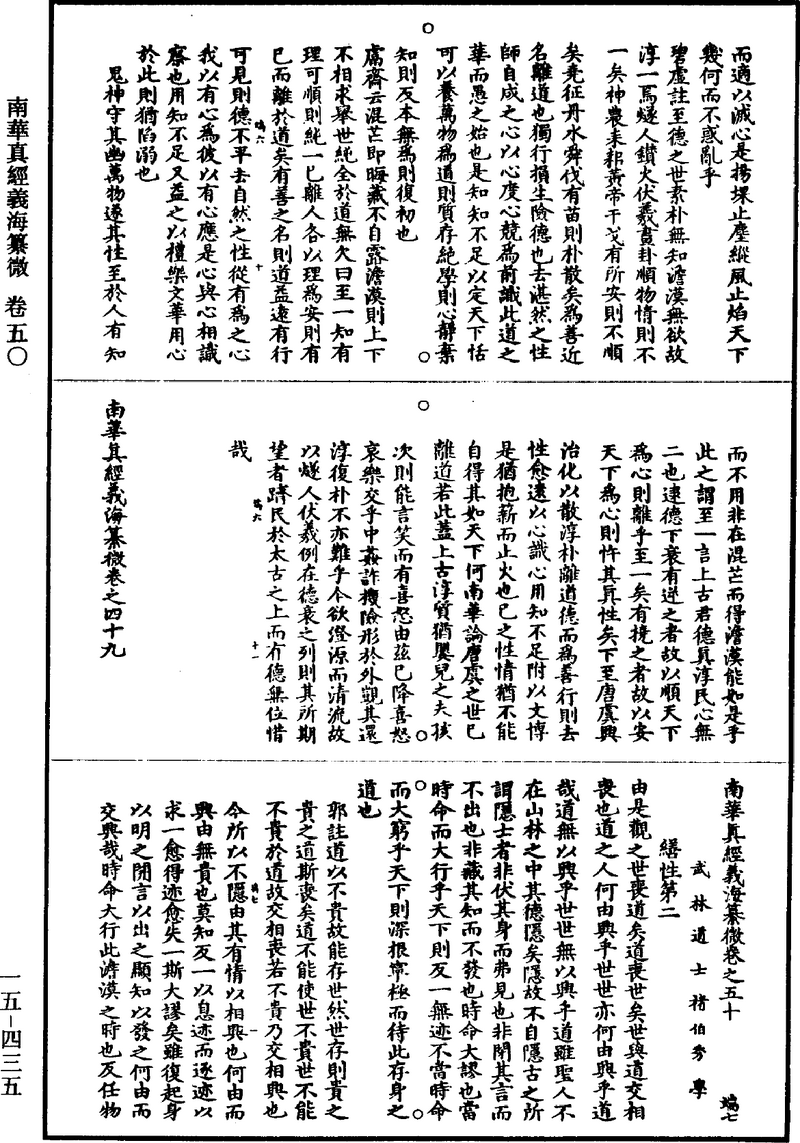 南華真經義海纂微 卷五〇
一五-四三五
而適以滅心是揚堁止塵縱風止焰天下
幾何而不惑亂乎
碧虛註至德之世素朴無知澹漠無欲故
淳一焉燧人鑽火伏羲畫卦順物情則不
一矣神農耒耜黃帝干戈有所安則不順
矣堯征丹水舜伐有苗則朴散矣為善近
名離道也獨行損生險德也去湛然之性
師自成之心以心度心競為前識此道之
華而愚之始也是知知不足以定天下恬
可以養萬物為道則質存絕學則心靜棄
知則反本無為則復初也
鬳齋云混芒即晦藏不自露澹漠則上下
不相求舉世純全於道無欠曰至一知有
理可順則純一已離人各以理為安則有
已而離於道矣有善之名則道益遠有行
可見則德不平去自然之性從有為之心
我以有心為彼以有心應是心與心相識
察也用知不足又益之以禮樂文華用心
於此則猶陷溺也
鬼神守其幽萬物遂其性至於人有知
而不用非在混芒而得澹漠能如是乎
此之謂至一言上古君德真淳民心無
二也逮德下衰有逆之者故以順天下
為心則離乎至一矣有撓之者故以安
天下為心則忤其真性矣下至唐虞興
治化以散淳朴離道德而為善行則去
性愈遠以心識心用知不足附以文博
是猶抱薪而止火也已之性情猶不能
自得其如天下何南華論唐虞之世已
離道若此蓋上古淳質猶嬰兒之未孩
次則能言笑而有喜怒由茲已降喜怒
哀樂交乎中姦詐機險形於外觀其還
淳復朴不亦難乎今欲澄源而清流故
以燧人伏羲例在德衰之列則其所期
望者躋民於太古之上而有德無位惜
哉
南華真經義海纂微卷之四十九
南華真經義海纂微卷之五十 端七
武林道士褚伯秀學
繕性第二
由是觀之世喪道矣道喪世矣世與道交相
喪也道之人何由興乎世世亦何由興乎道
哉道無以興乎世世無以興乎道雖聖人不
在山林之中其德隱矣隱故不自隱古之所
謂隱士者非伏其身而弗見也非閉其言而
不出也非藏其知而不發也時命大謬也當
時命而大行乎天下則反一無迹不當時命
而大窮乎天下則深根寧極而待此存身之
道也
郭註道以不貴故能存世然世存則貴之
貴之道斯喪矣道不能使世不貴世不能
不貴於道故交相喪若不貴乃交相興也
今所以不隱由其有情以相興也何由而
興由無貴也莫知反一以息迹而逐迹以
求一愈得迹愈失一斯大謬矣雖復起身
以明之開言以出之顯知以發之何由而
交興哉時命大行此澹漠之時也反任物